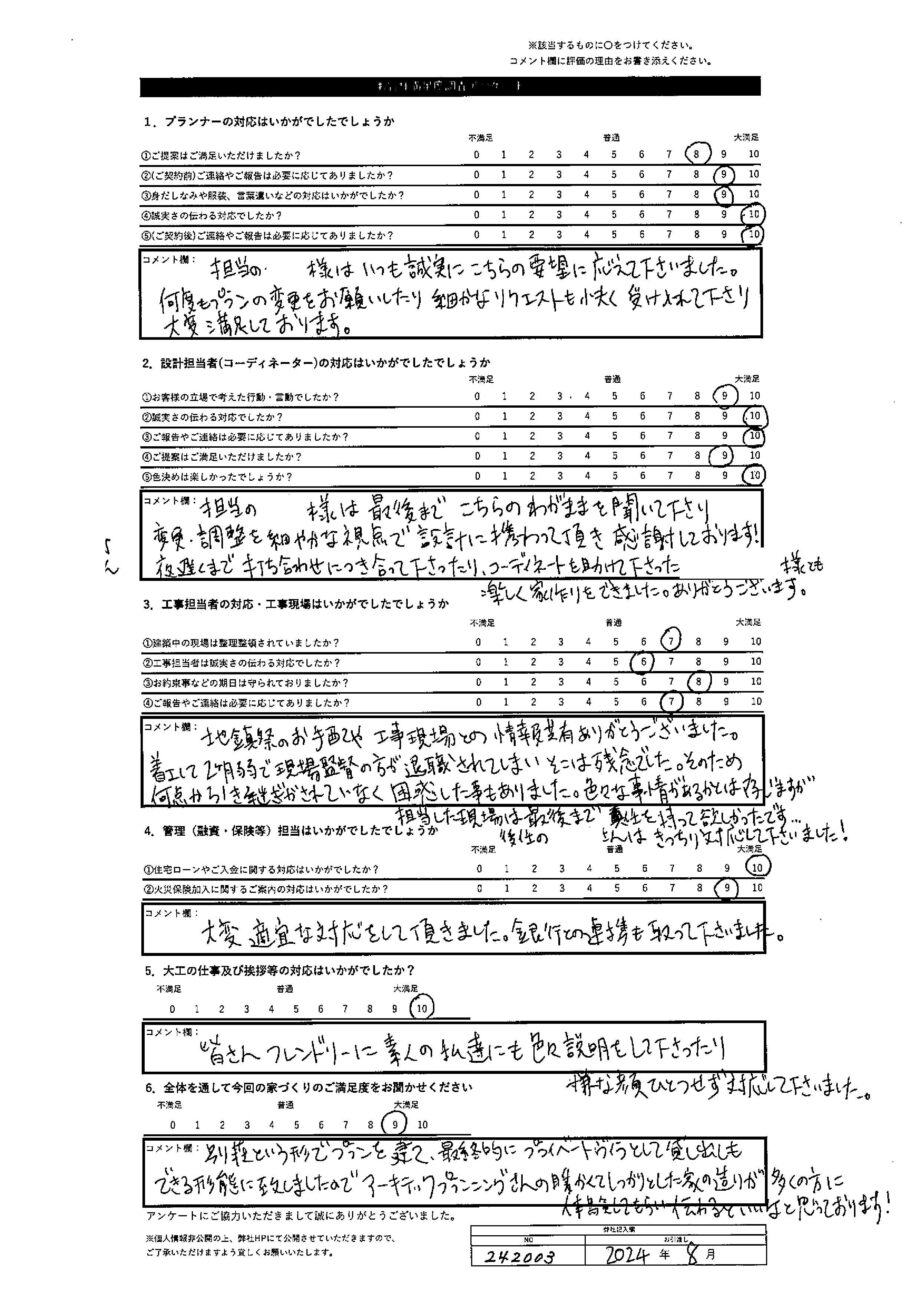 ※該当するものに〇をつけてください。
コメント欄に評価の理由をお書き添えください。
1．プランナーの対応はいかがでしたでしょうか
不満足 普通 大満足
①ご提案はご満足いただけましたか？ 0 1 2 3 4 5 6 7 8 9 10
②(ご契約前)ご連絡やご報告は必要に応じてありましたか？ 0 1 2 3 4 5 6 7 8 9 10
③身だしなみや服装、言葉遣いなどの対応はいかがでしたか？ 0 1 2 3 4 5 6 7 8 9 10
④誠実さの伝わる対応でしたか？ 0 1 2 3 4 5 6 7 8 9 10
⑤(ご契約後)ご連絡やご報告は必要に応じてありましたか？ 0 1 2 3 4 5 6 7 8 9 10
コメント欄： 担当の 様はいつも誠実にこちらの要望に応えて下さいました。
何度もプランの変更をお願いしたり細かなリクエストも快く受け入れて下さり
大変満足しております。
2．設計担当者(コーディネーター)の対応はいかがでしたでしょうか
不満足 普通 大満足
①お客様の立場で考えた行動・言動でしたか？ 0 1 2 3 4 5 6 7 8 9 10
②誠実さの伝わる対応でしたか？ 0 1 2 3 4 5 6 7 8 9 10
③ご報告やご連絡は必要に応じてありましたか？ 0 1 2 3 4 5 6 7 8 9 10
④ご提案はご満足いただけましたか？ 0 1 2 3 4 5 6 7 8 9 10
⑤色決めは楽しかったでしょうか？ 0 1 2 3 4 5 6 7 8 9 10
コメント欄： 担当の 様は最後までこちらのわがままを聞いて下さり
変更・調整を細やかな視点で設計に携わって頂き感謝しております!
夜遅くまで打ち合わせにつき合って下さったり、コーディネートを助けて下さった 様とも
楽しく家作りをできました。ありがとうございます。
3．工事担当者の対応・工事現場はいかがでしたでしょうか
不満足 普通 大満足
①建築中の現場は整理整頓されていましたか？ 0 1 2 3 4 5 6 7 8 9 10
②工事担当者は誠実さの伝わる対応でしたか？ 0 1 2 3 4 5 6 7 8 9 10
③お約束事などの期日は守られておりましたか？ 0 1 2 3 4 5 6 7 8 9 10
④ご報告やご連絡は必要に応じてありましたか？ 0 1 2 3 4 5 6 7 8 9 10
コメント欄： 地鎮祭のお手配や工事現場との情報共有ありがとうございました。
着工して2ヶ月弱で現場監督の方が退職されてしまいそこは残念でした。そのため
何点か引き継ぎがされていなく困惑した事もありました。色々な事情があるかとは存じますが
担当した現場は最後まで責任を持って欲しかったです…
4．管理（融資・保険等）担当はいかがでしたでしょうか
後任の さんはきっちり対応して下さいました!
不満足 普通 大満足
①住宅ローンやご入金に関する対応はいかがでしたか？ 0 1 2 3 4 5 6 7 8 9 10
②火災保険加入に関するご案内の対応はいかがでしたか？ 0 1 2 3 4 5 6 7 8 9 10
コメント欄：
大変適宜な対応をして頂きました。銀行との連携も取って下さいました。
5．大工の仕事及び挨拶等の対応はいかがでしたか？
不満足 普通 大満足
0 1 2 3 4 5 6 7 8 9 10
コメント欄：
皆さんフレンドリーに素人の私達にも色々説明をして下さったり
嫌な顔ひとつせず対応して下さいました。
6．全体を通して今回の家づくりのご満足度をお聞かせください
不満足 普通 大満足
0 1 2 3 4 5 6 7 8 9 10
コメント欄： 別荘という形でプランを建て、最終的にプライベートヴィラとして貸し出しも
できる形態に致しましたのでアーキテックプランニングさんの暖かくてしっかりとした家の造りが多くの方に
体験してもらい伝わるといいなと思っております!
アンケートにご協力いただきまして誠にありがとうございました。
※個人情報非公開の上、弊社HPにて公開させていただきますので、
ご了承いただけますよう宜しくお願いいたします。
弊社記入欄
NO お引渡し
242003 2024 年 8 月